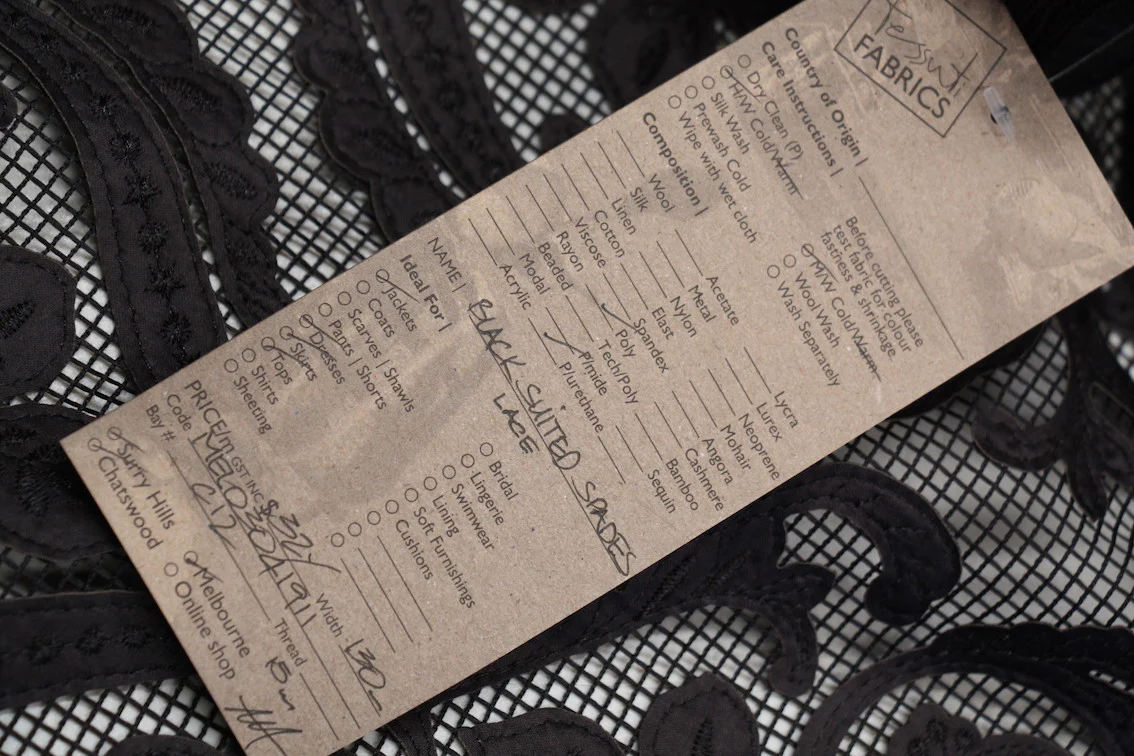 Tessuti
FABRICS
Country of Origin |
Care Instructions |
Dry Clean (P)
H/W Cold/Warm
Silk Wash
Prewash Cold
Wipe with wet cloth
Before cutting please
test fabric for colour
fastness & shrinkage
M/W Cold/Warm
Wool Wash
Wash Separately
Composition |
Wool
Silk
Linen
Cotton
Viscose
Rayon
Beaded
Modal
Acrylic
Acetate
Metal
Nylon
Elast
Spandex
Poly
Tech/Poly
P/mide
P/urethane
Lycra
Lurex
Neoprene
Mohair
Angora
Cashmere
Bamboo
Sequin
NAME | BLACK SUITED SPADES
LACE
Ideal For |
Jackets
Coats
Scarves | Shawls
Pants | Shorts
Dresses
Skirts
Tops
Shirts
Sheeting
Bridal
Lingerie
Swimwear
Lining
Soft Furnishings
Cushions
PRICE/m GST INC $
Width 130
Code
Thread
Bay # C12
15m
Surry Hills
Chatswood
Melbourne
Online shop